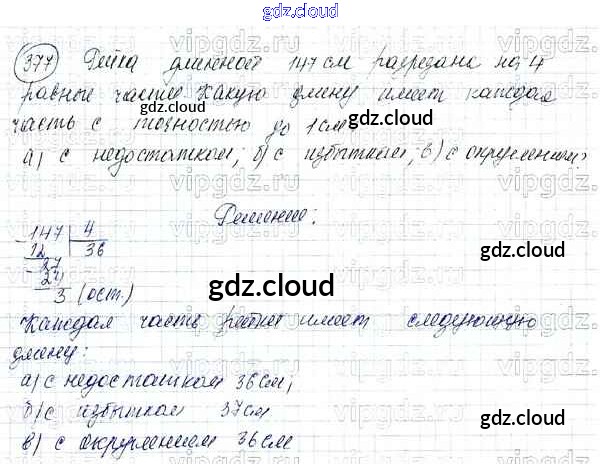 gdz.cloud
377 Рейка длиной 147 см разрезана на 4
равные части. Какую длину имеет каждая
часть с точностью до 1 см:
а) с недостатком; б) с избытком; в) с округлением?
Решение:
147 | 4
12 | 36
27
24
3 (ост.)
Каждая часть рейки имеет следующую
длину:
а) с недостатком 36 см,
б) с избытком 37 см
в) с округлением 36 см
gdz.cloud
gdz.cloud
gdz.cloud
gdz.cloud
gdz.cloud
gdz.cloud
gdz.cloud